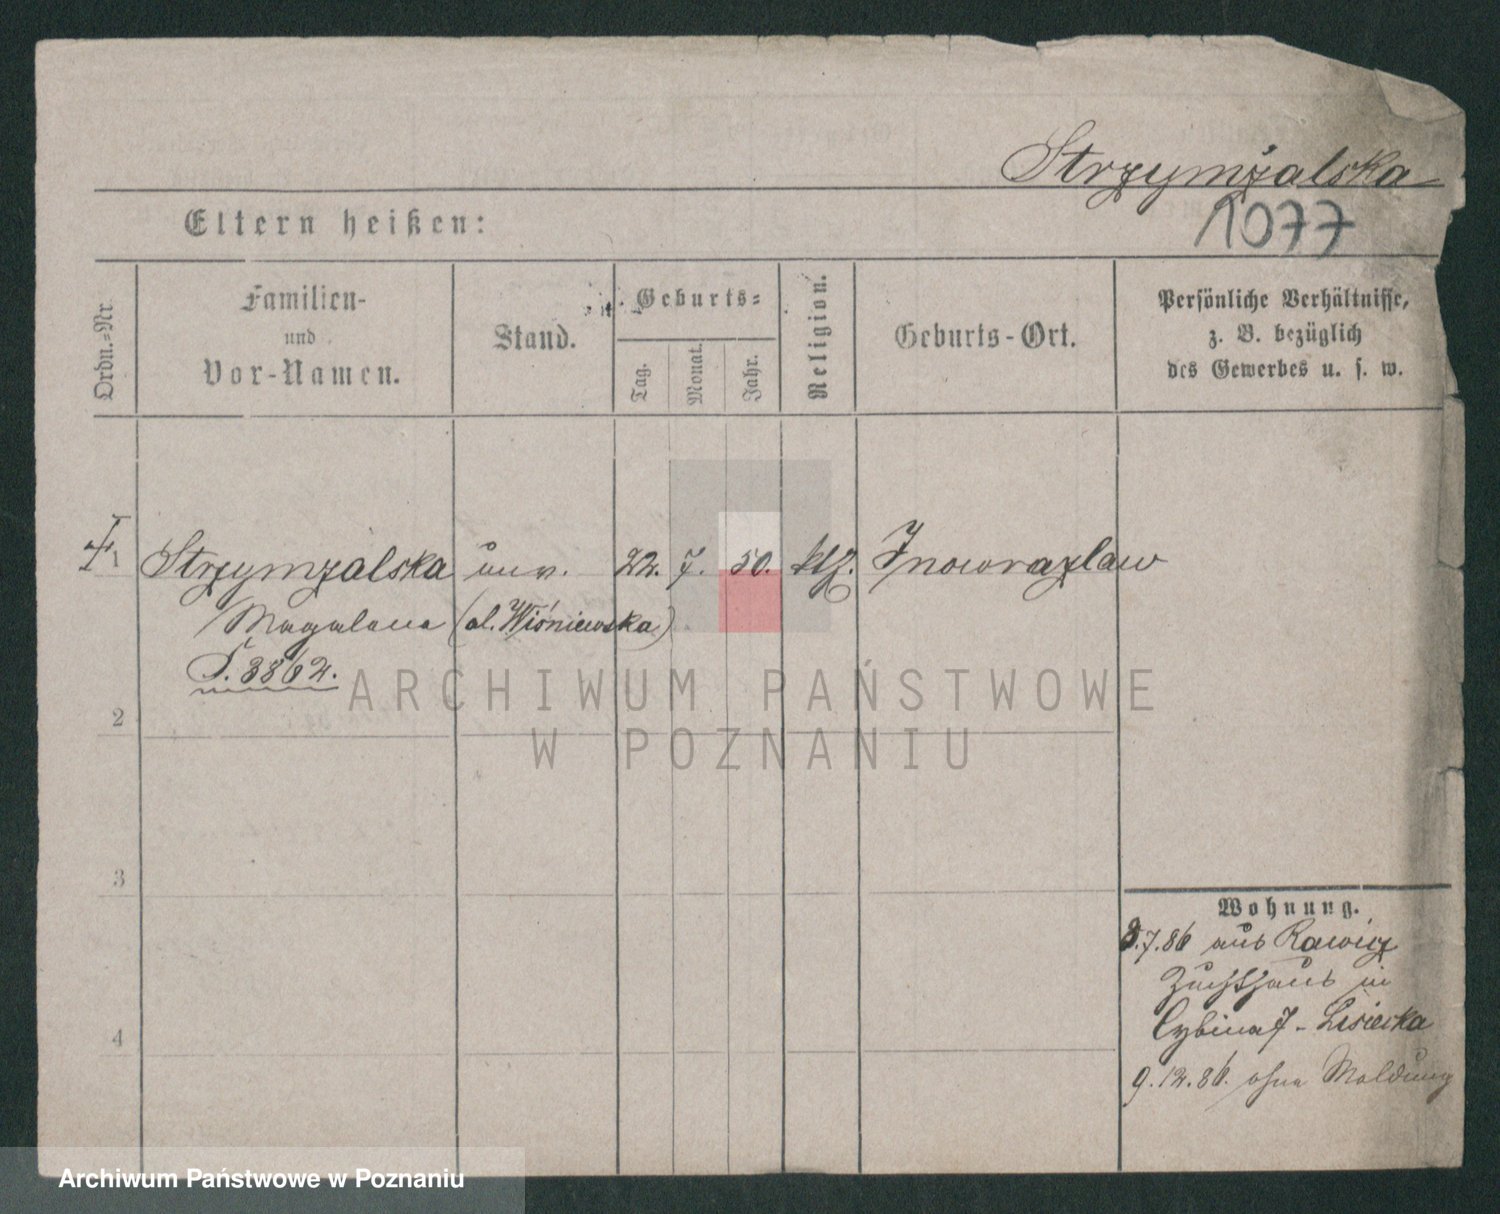 Strzymżalska
1077
Eltern heißen:
Ordn.=Nr.
Familien-
und
Vor-Namen.
Stand.
Geburts=
Tag.
Monat.
Jahr.
Religion.
Geburts-Ort.
Persönliche Verhältnisse,
z. B. bezüglich
des Gewerbes u. s. w.
Strzymzalska unv. 22. 7. 50. Inowrazlaw
Magalena (al. Wiśniewska)
3862.
2
3
4
Wohnung.
8.7.86 aus Rawicz
Zuchthaus in
Cybina 7 - Lisiecka
9.12.86. ohne Meldung
ARCHIWUM PAŃSTWOWE
W POZNANIU
Archiwum Państwowe w Poznaniu